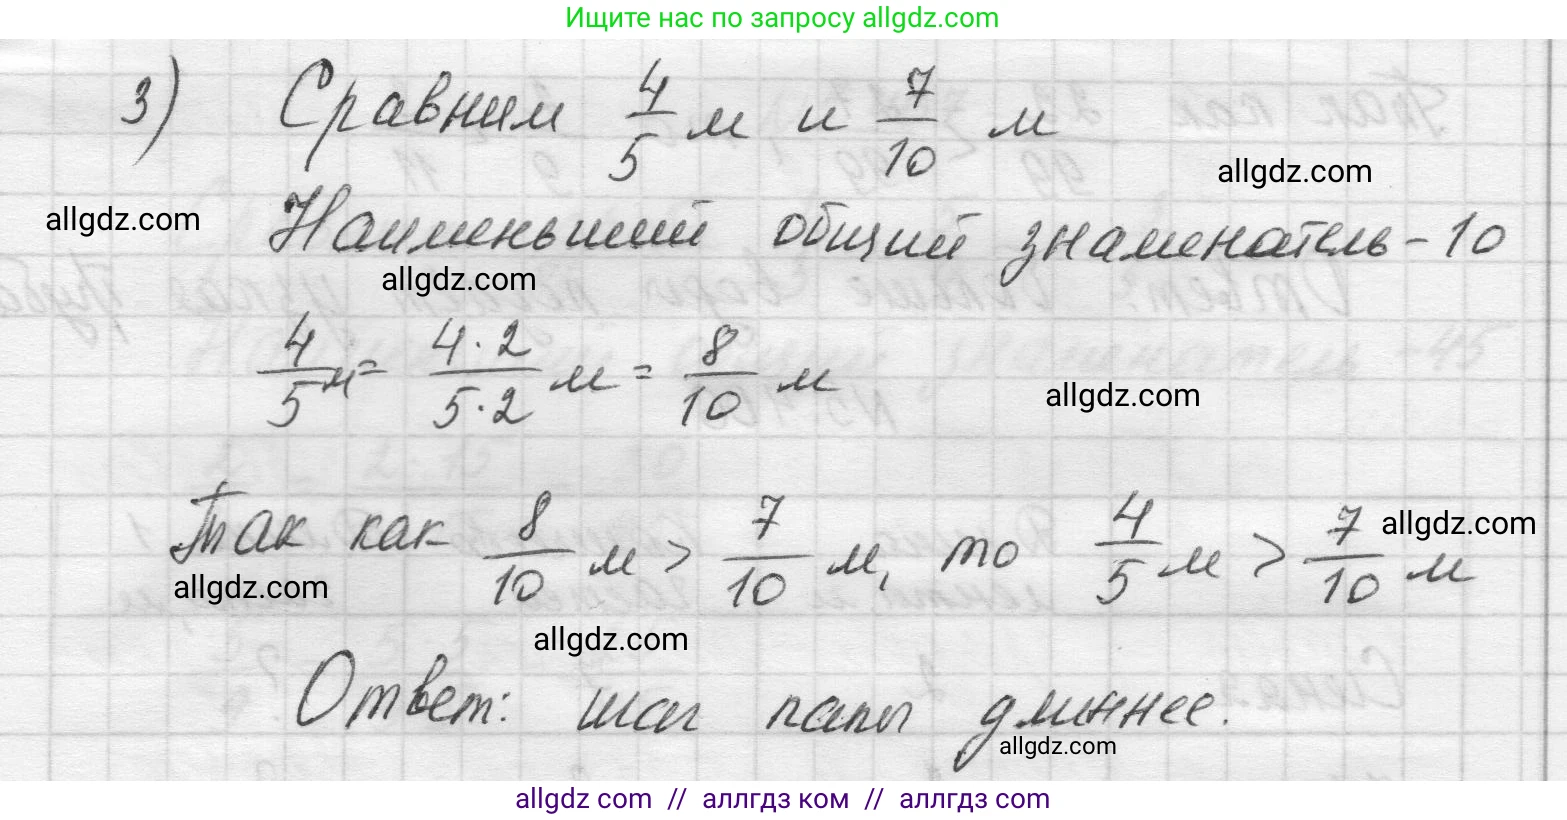 Ищите нас по запросу allgdz.com
3) Сравним 4/5 м и 7/10 м
allgdz.com
allgdz.com
Наименьший общий знаменатель - 10
allgdz.com
4/5 м = 4·2/5·2 м = 8/10 м
allgdz.com
Так как 8/10 м > 7/10 м, то 4/5 м > 7/10 м
allgdz.com
allgdz.com
allgdz.com
Ответ: шаг папы длиннее.
allgdz.com
allgdz com // аллгдз ком // allgdz com